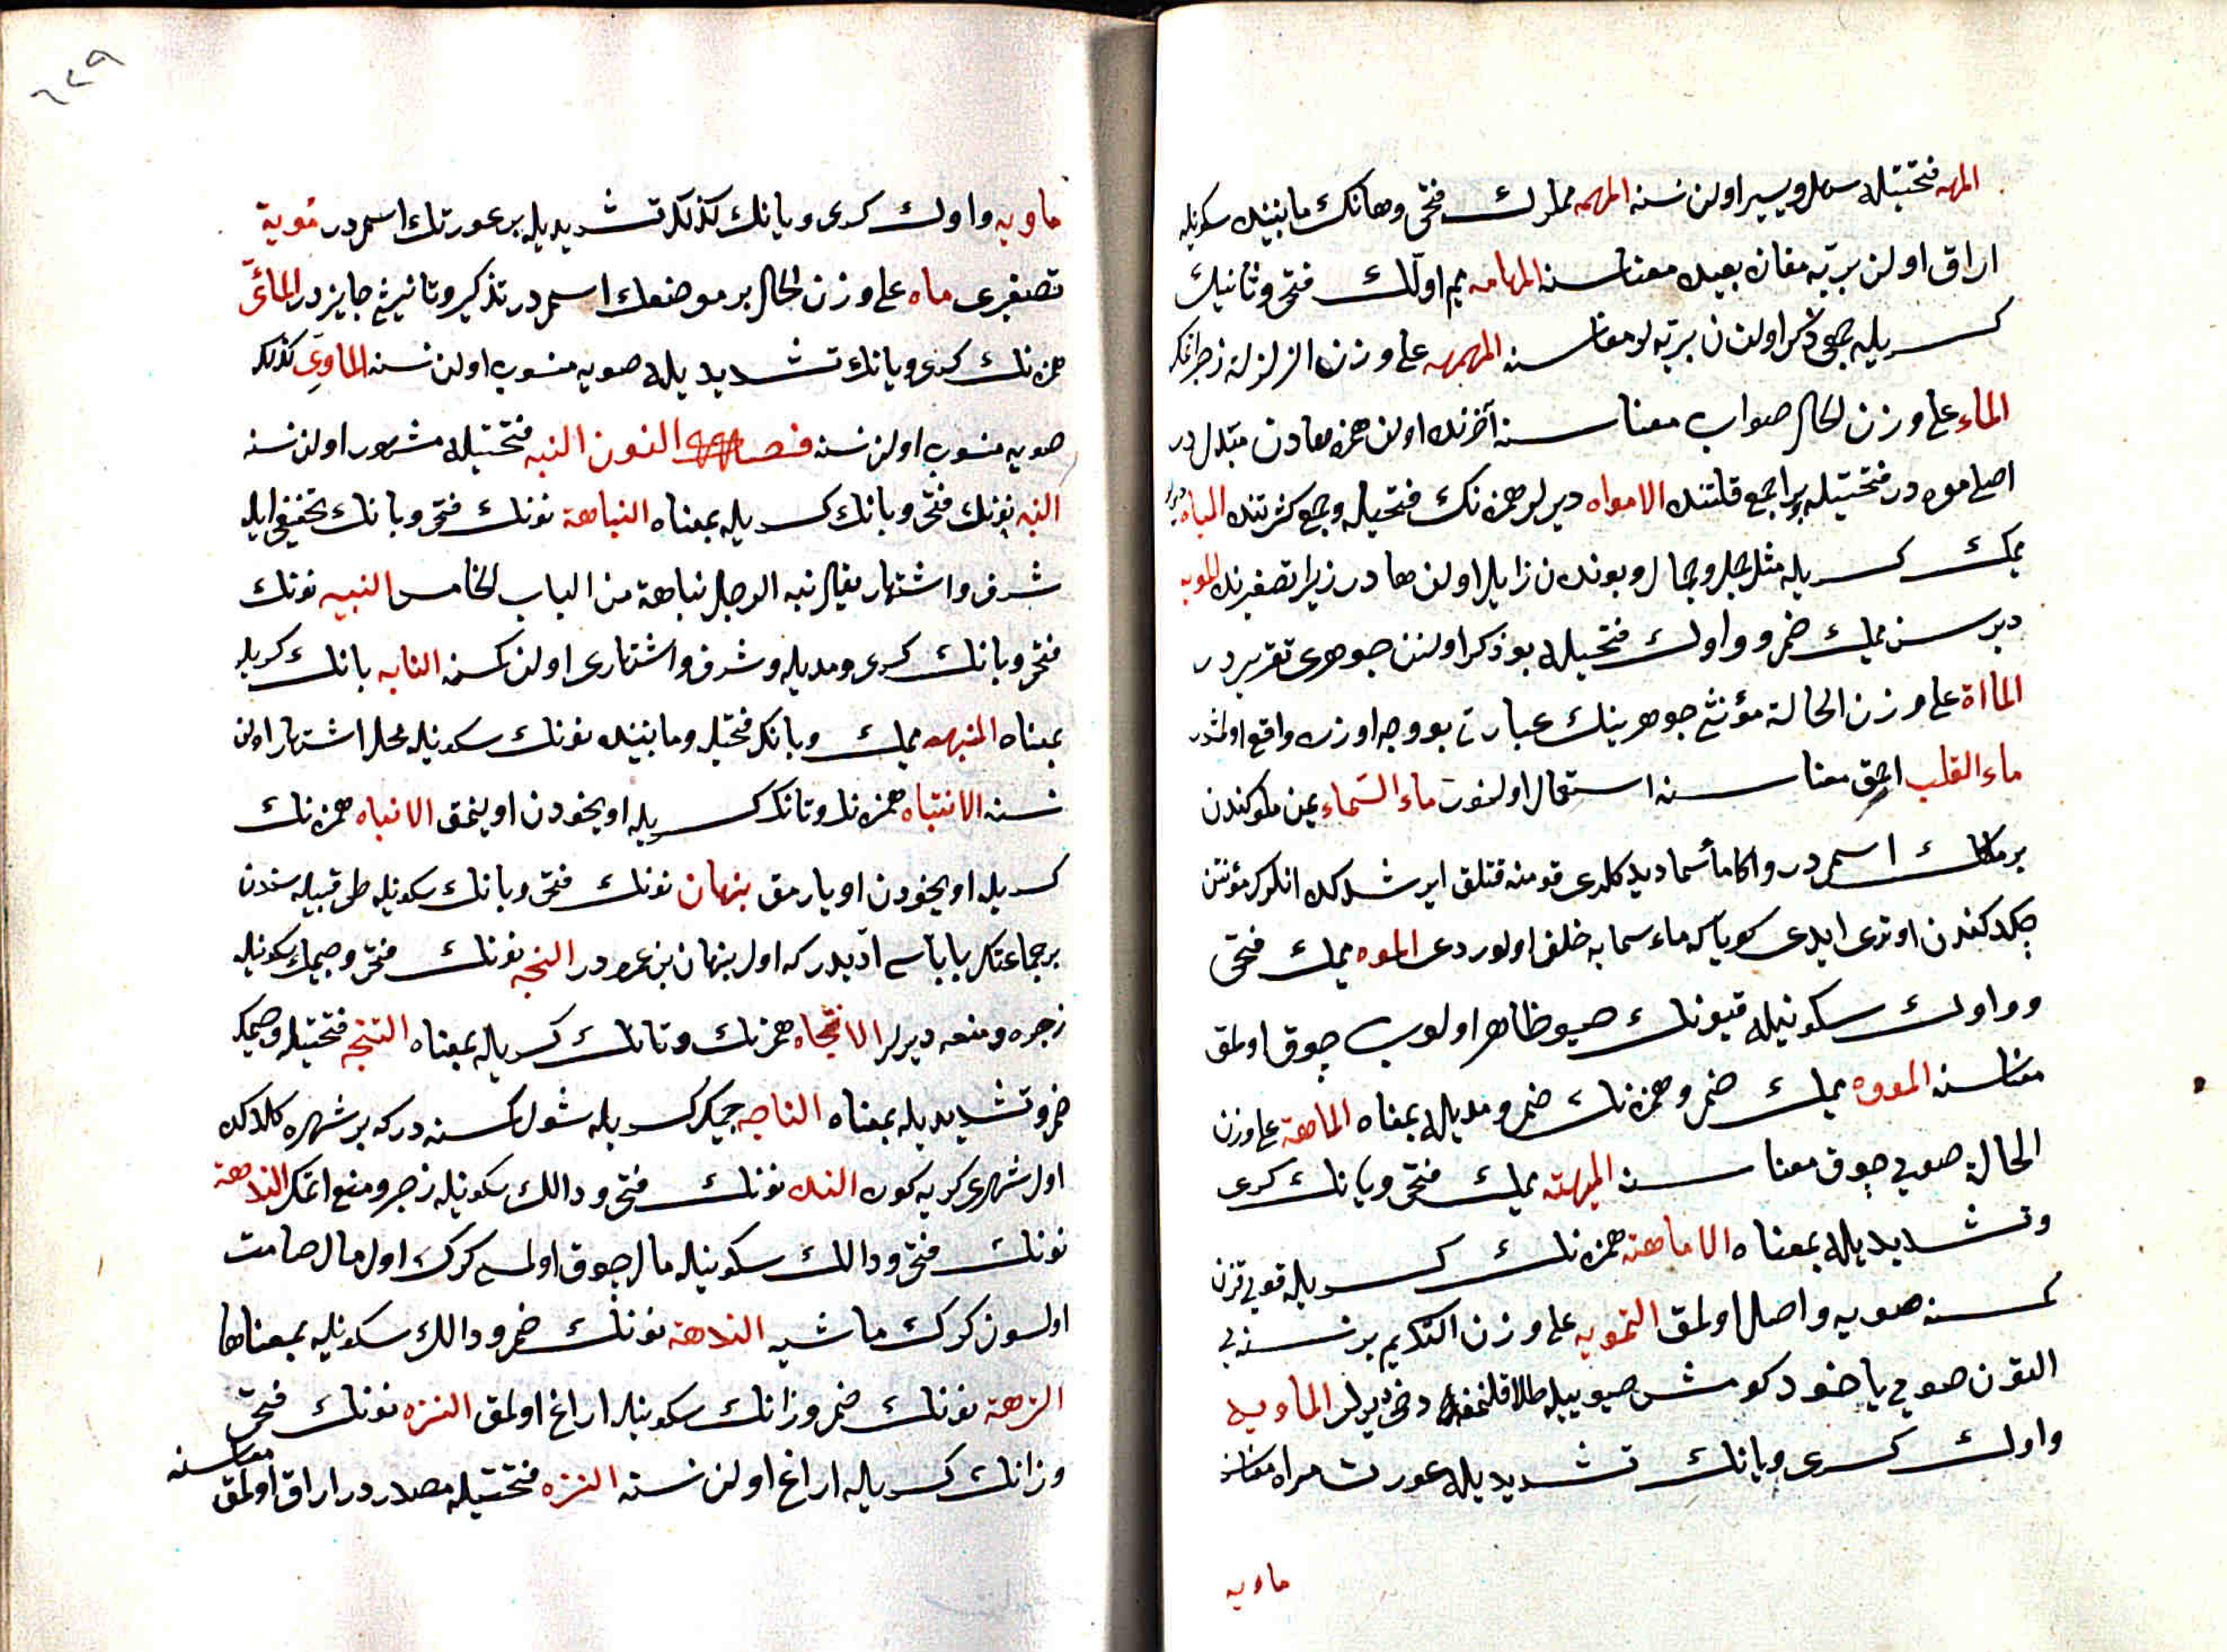 المهه فتحتيله سهل ويسير اولن نسنه المهمه ميملرك فتحى وهانك مابينده سكونيله
اراق اولن بريّه مفازه بعيده معناسنه المهامه ميم اوّلك فتحى وثانينك
كسريله جمعى ذكر اولنن بريّه لر معناسنه المهمهه على وزن الزلزلة زجر اتمك
الماء على وزن الحال صو اب معناسنه آخرنده اولن همزه هادن مبتدل در
اصلى موه در فتحتيله جمع قلتنده الامواه ديرلر همزه نك فتحيله وجمع كثرتنده المياه ديرلر
ميمك كسريله مثل جمل وجمال وبوندن زايل اولن هادر زيرا تصغيرنده المويه
ديرسن ميمك ضمى وواوك فتحيله بو ذكر اولنن جوهرى تقريريدر
الماأة على وزن الحالة مؤنثى جوهرينك عبارتى بو وجه اوزره واقع اولمشدر
ماء القلب احمق معناسنه استعمال اولنور ماء السّماء يمن ملوكندن
بر ملكك اسمى در واكا ماء سما ديدكلرى قومنه قتلق ايرشدكده انلرك مؤنتن
چكدكندن اوترى ايدى كويا كه ماء سمايه خلف اولوردى الموه ميمك فتحى
وواوك سكونيله قيونك صيو ظاهر اولوب چوق اولمق
معناسنه المووه ميمك ضمى وهمزه نك ضمى ومديله بمعناه الماهة على وزن
الحالة صويى چوق معناسنه الميهة ميمك فتحى ويانك كسرى
وتشديديله بمعناه الاماهة همزه نك كسريله قويى قزن
كمسنه صويه واصل اولمق التمويه على وزن التكريم بر نسنه يى
التون صويى ياخود كومش صيوييله طلا قلنمغه دخى ديرلر الماويه
واوك كسرى ويانك تشديديله عورت مراه معناسنه
ماويه
٦٢٩
ماويه واوك كسرى ويانك كذلك تشديديله بر عورتك اسمى در مويه
تصغيرى ماه على وزن الحال بر موضعك اسمى در تذكير وتانيثى جايزدر المائىّ
همزه نك كسرى ويانك تشديديله صويه منسوب اولن نسنه الماوىّ كذلك
صويه منسوب اولن نسنه فصل النون النبه فتحتيله مشهور اولن نسنه
النبه نونك فتحى وبانك كسريله بمعناه النباهة نونك فتحى وبانك تخفيفى ايله
شرف واشتهار يقال نبه الرجل نباهة من الباب الخامس النبيه نونك
فتحى وبانك كسرى ومديله وشرف واشتهارى اولن كمسنه النابه بانك كسريله
بمعناه المنبهه ميمك وبانك فتحيله ومابينده نونك سكونيله محل اشتهار اولن
نسنه الانتباه همزه نك وتانك كسريله اويخودن اوينمق الانباه همزه نك
كسريله اويخودن اويارمق نبهان نونك فتحى وبانك سكونيله طى قبيله سندن
بر جماعتك باباسى آديدر كه اول نبهان بن عمرو در النجه نونك فتحى وجيمك سكونيله
زجره ومنعه ديرلر الانتجاه همزه نك وتانك كسريله بمعناه التنجه فتحتيله وجيمك
ضمى وتشديديله بمعناه الناجه جيمك كسريله شول كمسنه در كه بر شهره كلدكده
اول شهرى كريه كوره النده نونك فتحى ودالك سكونيله زجر ومنع اتمك الندهة
نونك فتحى ودالك سكونيله مال چوق اولسى كرك اول مال صامت
اولسون كرك ماشيه الندهة نونك ضمى ودالك سكونيله بمعناها
النزهة نونك ضمى وزانك سكونيله اراغ اولمق النزه نونك فتحى
وزانك كسريله اراغ اولن نسنه النزه فتحتيله مصدر در اراق اولمق معناسنه